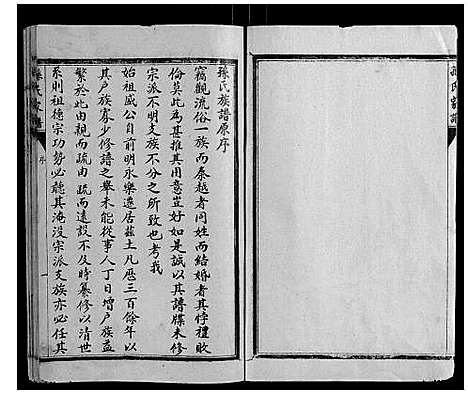 孫氏族譜原序
竊觀流俗一族而秦越者同姓而結婚者其悖禮敗
倫莫此為甚推其用意豈好如是誠以其譜牒未修
宗派不明支族不分之所致也考我
始祖威公自前明永樂遷居茲土凡歷三百餘年以
其户族寡少修譜之舉未能從事人丁日增户族益
繁於此由親而疏由疏而遠設不及時纂修以清世
系則祖德宗功勢必聽其淹没宗派支族亦必任其
孫氏家譜
序
一
氏家譜